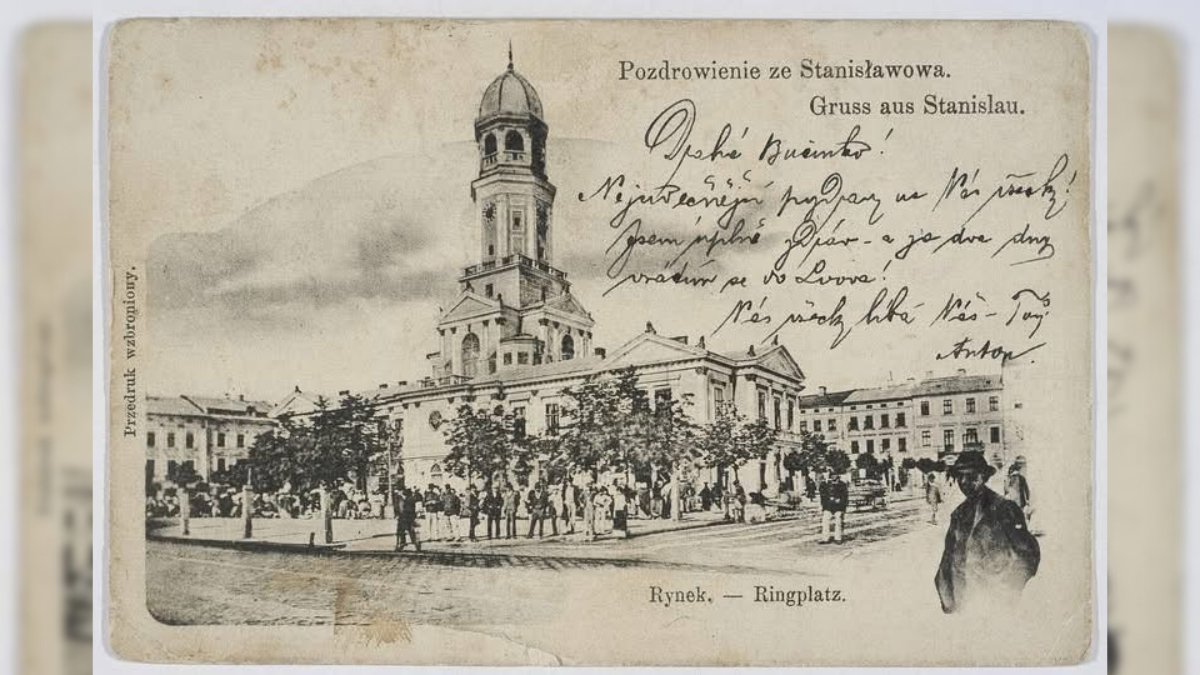 Pozdrowienie ze Stanisławowa.
Gruss aus Stanislau.
Drahé
Nejsrdečnější pozdravy na Vás všecky!
Jsem úplně zdráv - a za dva dny
vrátím se do Lvova!
Vás všecky líbá Váš - Tvůj
Anton.
Przedruk wzbroniony.
Rynek. — Ringplatz.